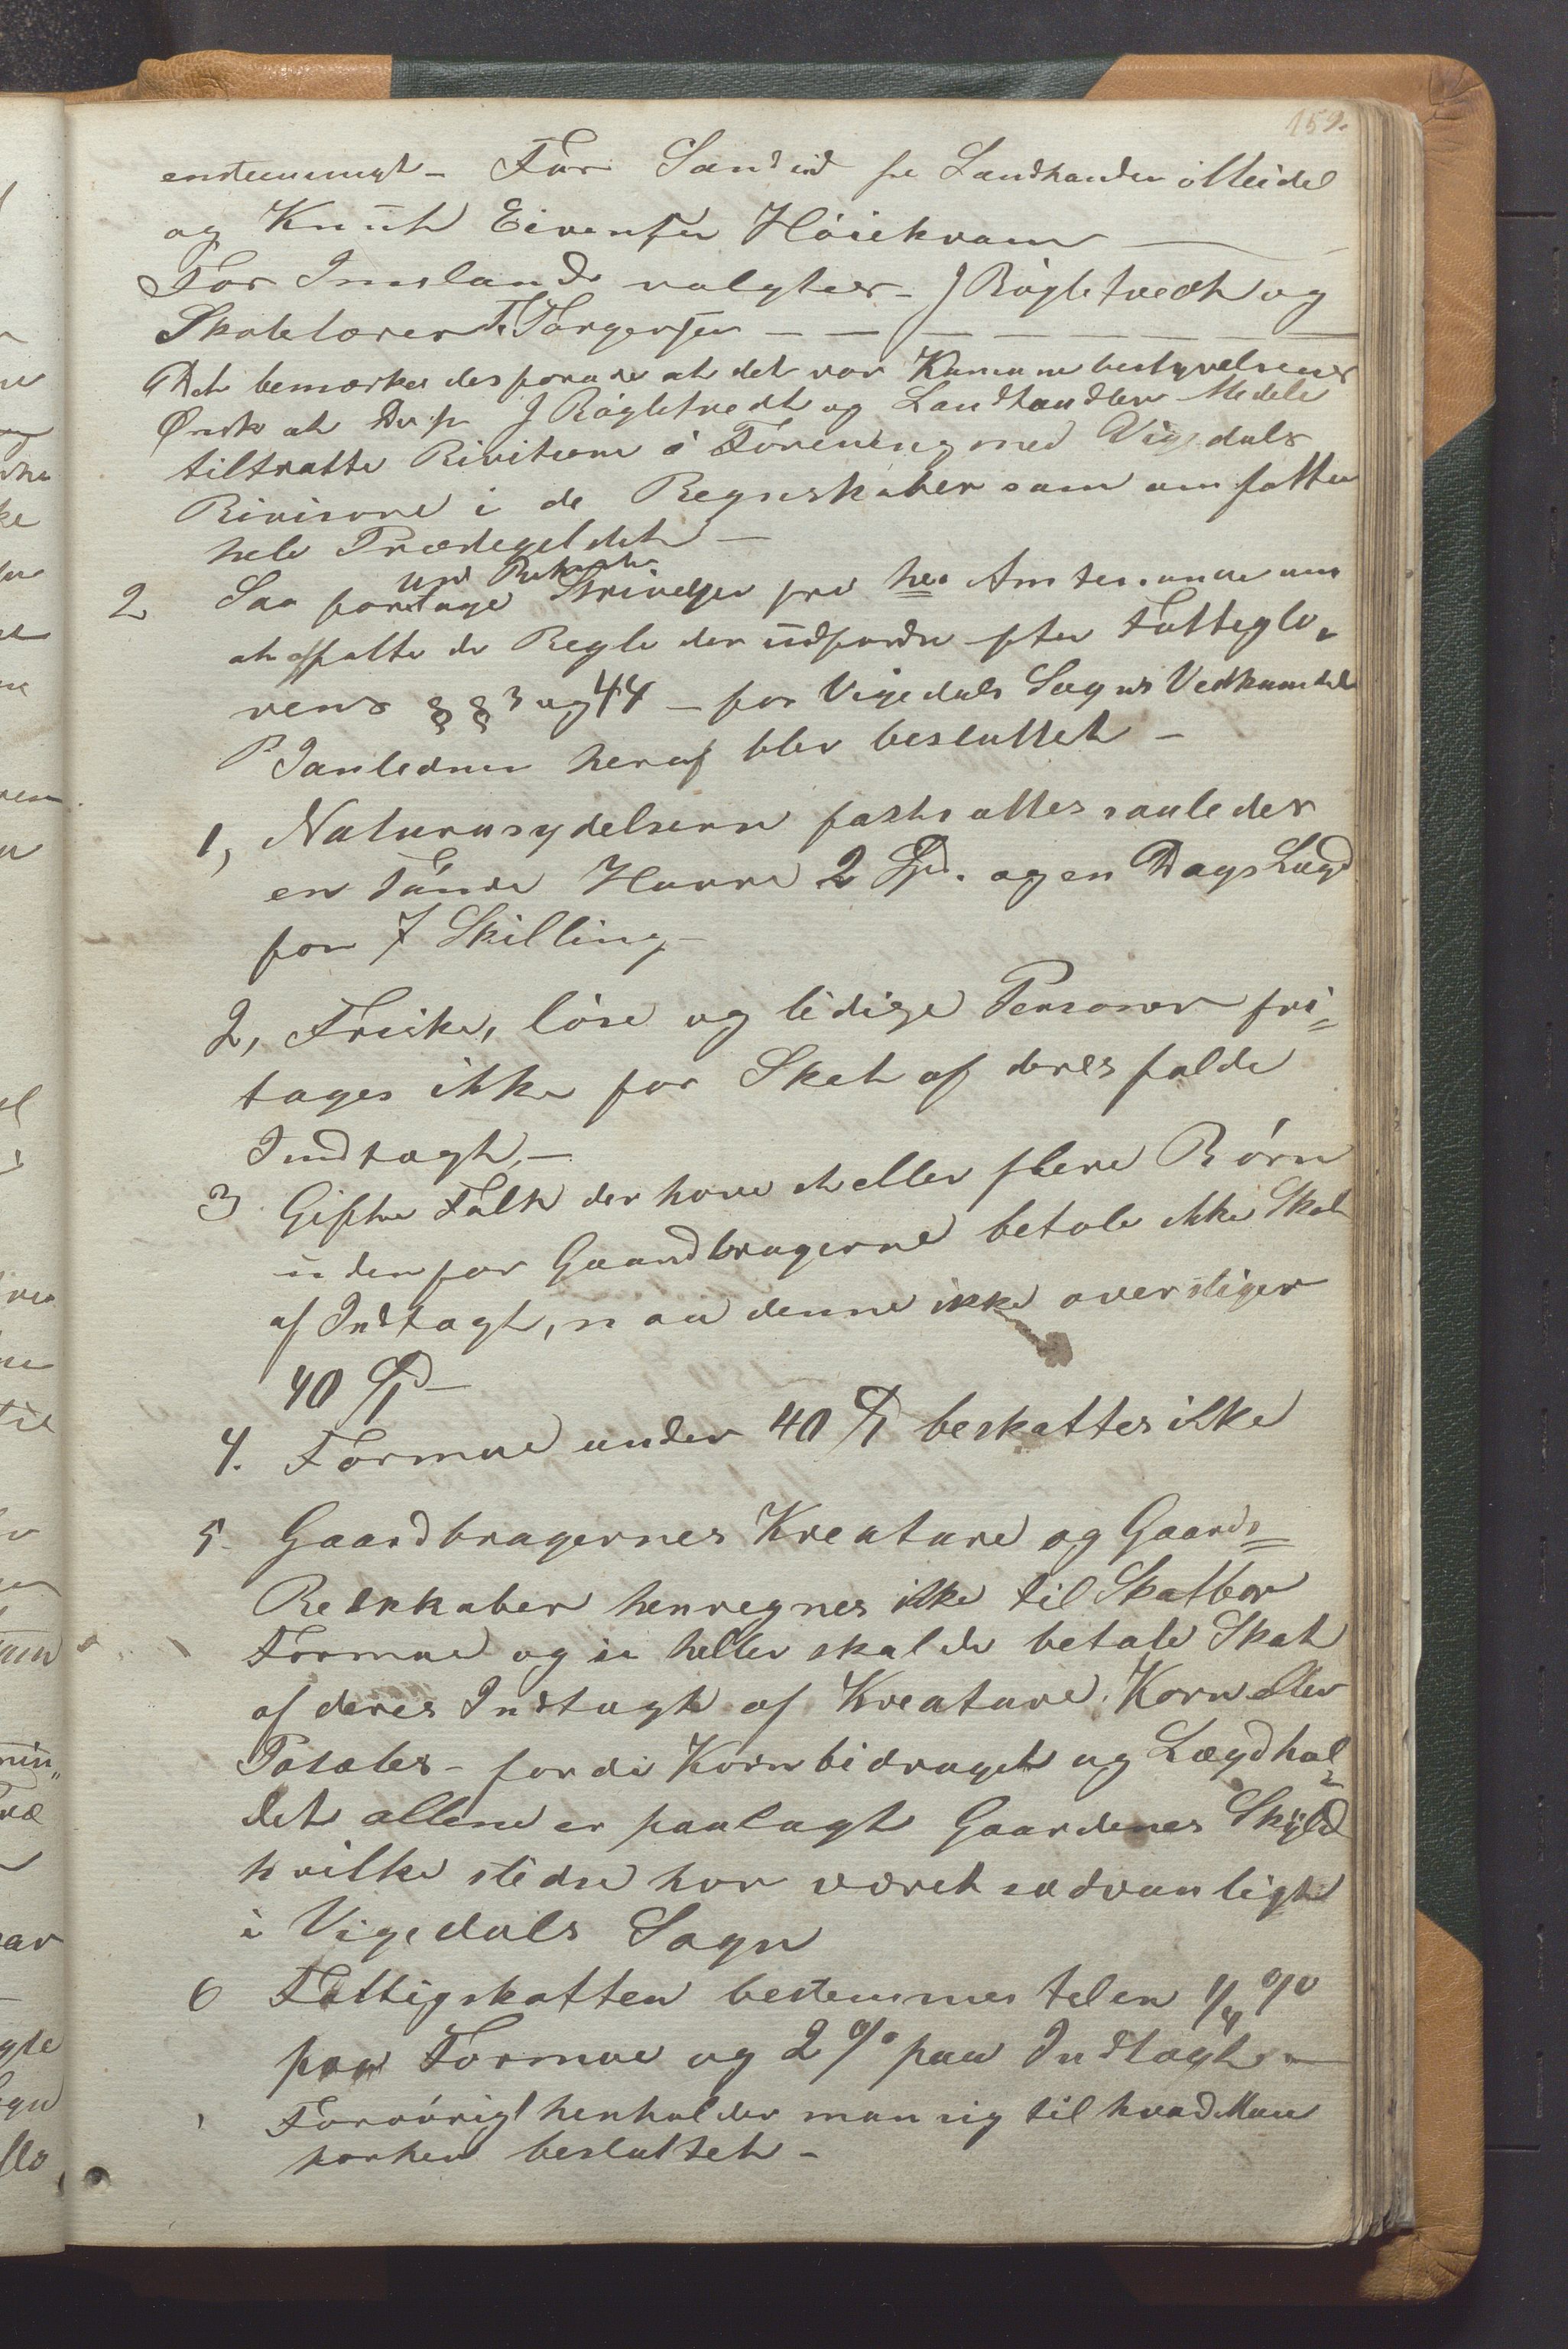 159.
enstemmigt – For Sandeid
og Knut Eivensen Höiekvam
For Imsland valgtes – J Bögletvedt og
Skolelærer T. Torgersen
Det bemærkes desforuden at det var Kommunebestyrelsens
Ønske at J Bögletvedt og Landhandler
tiltratte i Forening med Vigedals
Rivisore i de Regnskaber som omfatter
hele Præstegjeldet –
2 Saa foretages Skrivelse fra hr. Amtmanden om
at affatte de Regle der udfordre efter Fattiglo-
vens §§ 3 og 44 – for Vigedals Sogns Vedkommende
I anledning heraf blev besluttet –
1, Naturasydelserne fastsattes saaledes
en Tönde Havre 2 Spd. og en Dags Lægd
for 7 Skilling –
2, Friske, löse og ledige Personer fri=
tages ikke for Skat af deres fulde
Indtægt, –
3 Gifte Folk der have et eller flere Börn
udenfor Gaardbrugerne betale ikke Skat
af Indtægt, naar denne ikke overstiger
40 Spd –
4. Formue under 40 Spd beskattes ikke
5. Gaardbrugernes Kreature og Gaards=
Redskaber henregnes ikke til Skatbar
Formue og ei heller skal de betale Skat
af deres Indtægt af Kreature. Korn eller
Potates – fordi Kornbidraget og Lægdhol=
det allene er paalagt Gaardenes Skyld
hvilke stedse har været sædvanligt
i Vigedals Sogn
6 Fattigskatten bestemmes til en 1/4 %
paa Formue og 2 % paa Indtægt –
Foroövrigt henholder man sig til hvad Man
har besluttet –